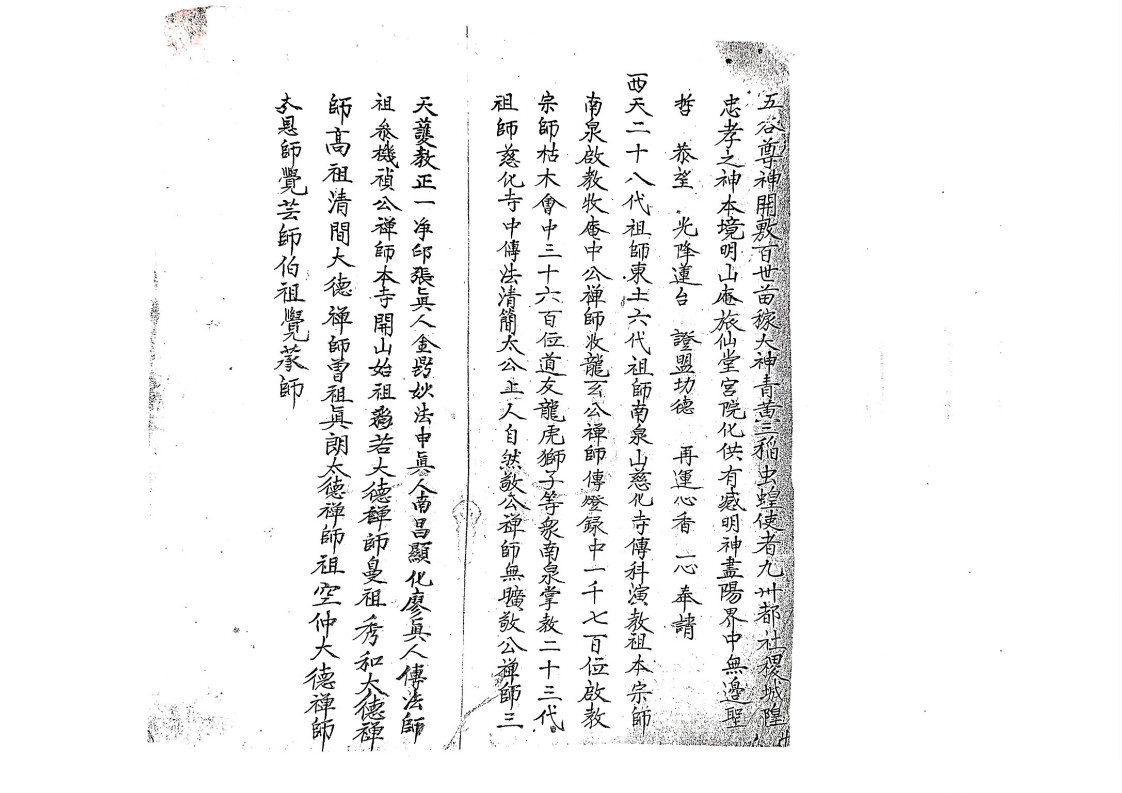 五谷尊神開敷百世苗稼大神青黃三稲虫蝗使者九州都社稷城隍
忠孝之神本境明山庵旅仙堂宮院化供有感明神盡陽界中無邊聖
哲　恭望　光降蓮台　證盟功德　再運心香　一心奉請
西天二十八代祖師東土六代祖師南泉山慈化寺傳科演教祖本宗師
南泉啟教牧庵中公禪師妆龍玄公禪師傳燈録中一千七百位啟教
宗師枯木會中三十六百位道友龍虎獅子等衆南泉掌教二十三代
祖師慈化寺中傳法清簡太公上人自然敬公禪師無曠敬公禪師三
天護教正一净邙張眞人金㘽妙法申眞人南昌顯化廖眞人傳法師
祖叅機禎公禪師本寺開山始祖彩若大德禪師曼祖秀和太德禅
師高祖清間大德禅師曽祖眞朗太德禅師祖空仲大德禅師
太恩師覺芸師伯祖覺蓁師